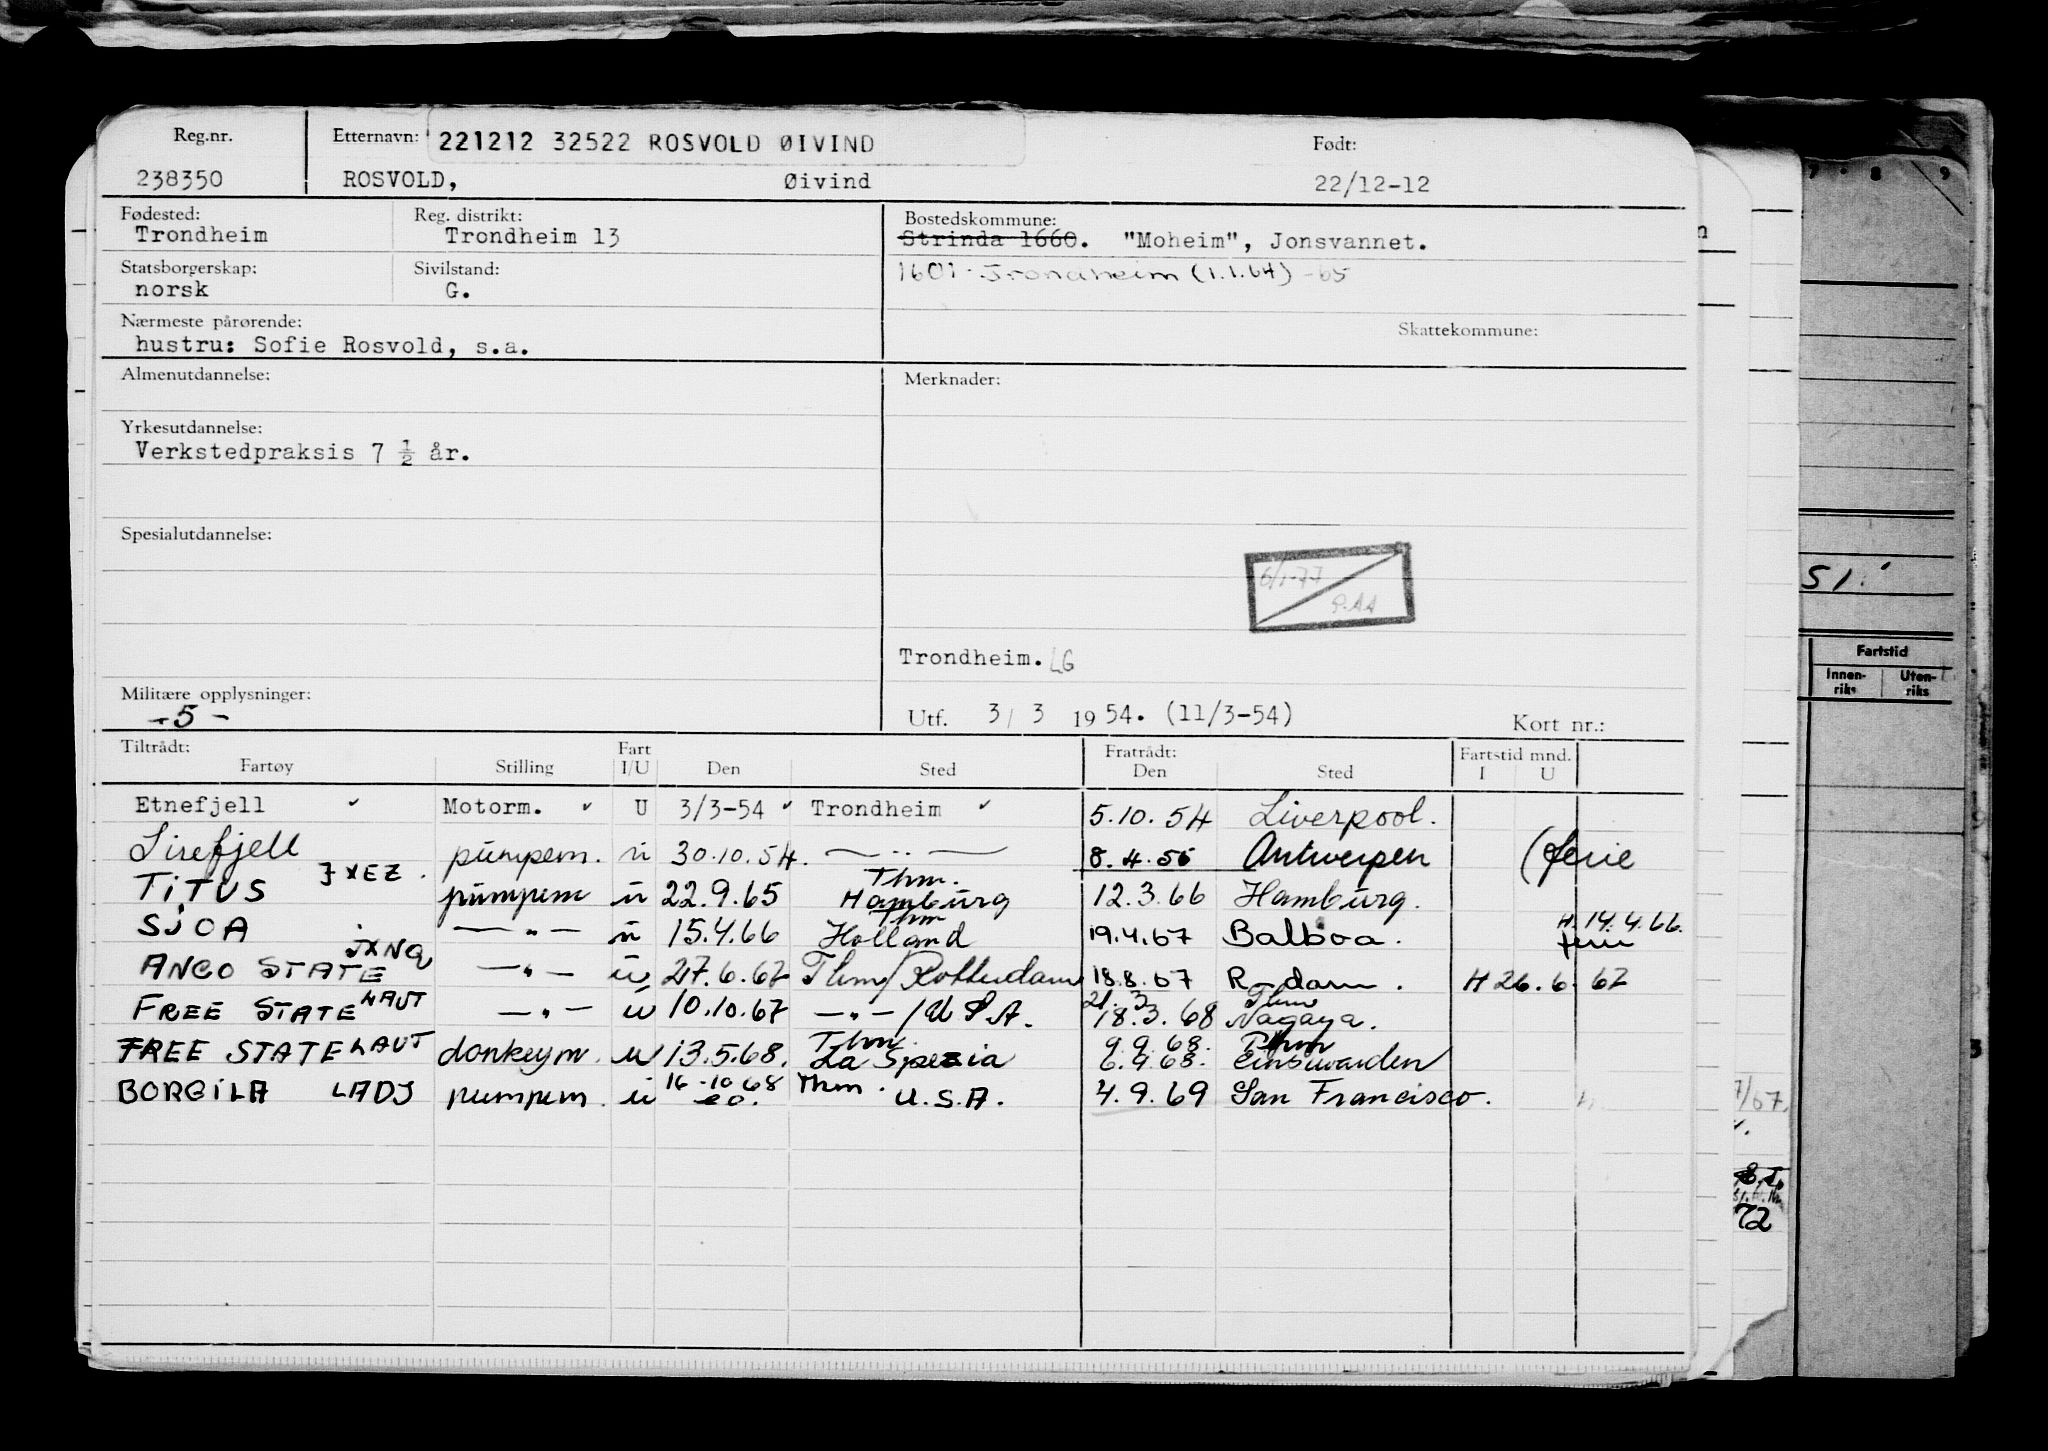 Reg.nr. Etternavn: 221212 32522 ROSVOLD ØIVIND Født:
238350 ROSVOLD, Øivind 22/12-12
Fødested: Reg. distrikt: Bostedskommune:
Trondheim Trondheim 13 Strinda 1660. "Moheim", Jonsvannet.
Statsborgerskap: Sivilstand: 1601 - Trondheim (1.1.64) -65
norsk G.
Nærmeste pårørende: Skattekommune:
hustru: Sofie Rosvold, s.a.
Almenutdannelse: Merknader:
Yrkesutdannelse:
Verkstedpraksis 7 ½ år.
Spesialutdannelse:
6/1-77
P.AA
Trondheim. LG
Militære opplysninger:
-5- Utf. 3/ 3 1954. (11/3-54) Kort nr.:
Tiltrådt: Fart Fratrådt: Fartstid mnd.
Fartøy Stilling I/U Den Sted Den Sted I U
Etnefjell Motorm. U 3/3-54 Trondheim 5.10.54 Liverpool.
Sirefjell pumpem. u 30.10.54. — " — 8.4.56 Antwerpen (ferie
TITUS JXEZ. pumpem u 22.9.65 Thm. Hamburg 12.3.66 Hamburg.
SJOA — " — u 15.4.66 Thm Holland 19.4.67 Balboa. H. 14.4.66. ferie
ANCO STATE JXNQ — " — u 27.6.67 Thm/Rotterdam 18.8.67 R-dam. H 26.6.67
FREE STATE LAUT — " — u 10.10.67 — " — /U.S.A. 21.3 18.3.68 Thm Nagaya.
FREE STATE LAUT donkeym. u 13.5.68. Thm. La Spezia 9.9.68. 6.9.68. Thm Einswarden
BORGILA LADJ pumpem. u 16-10 68 Thm. U.S.A. 4.9.69 San Francisco.
51.
Fartstid
Innen-
riks
Uten-
riks
72